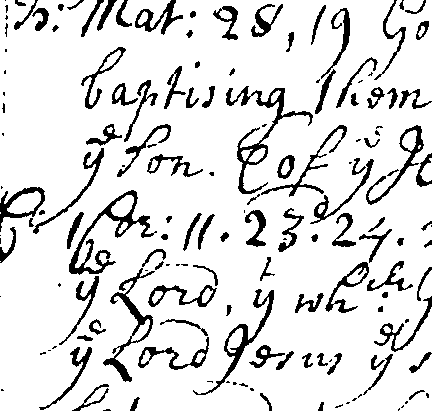 Mat: 28, 19 Go
baptising them
yᵉ Son. & of yᵉ
1 Cor: 11. 23ᵈ. 24.
yᵉ Lord, yᵗ whᶦᶜʰ:
yᵉ Lord Jesus yᵉ s